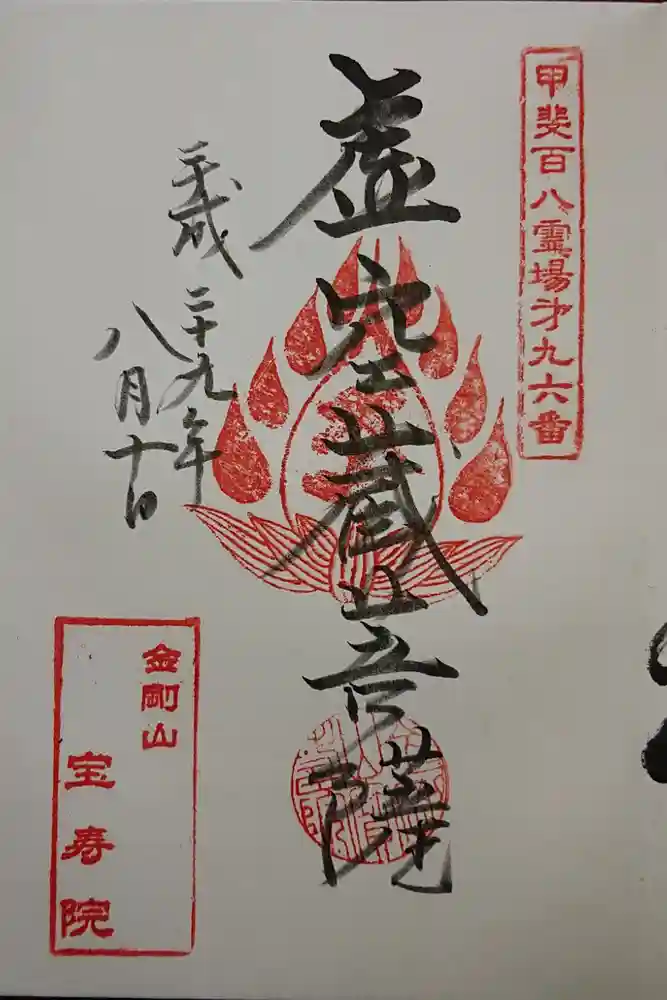 甲斐百八霊場才九六番
虚空蔵菩薩
平成二十九年
八月十日
金剛山
宝寿院